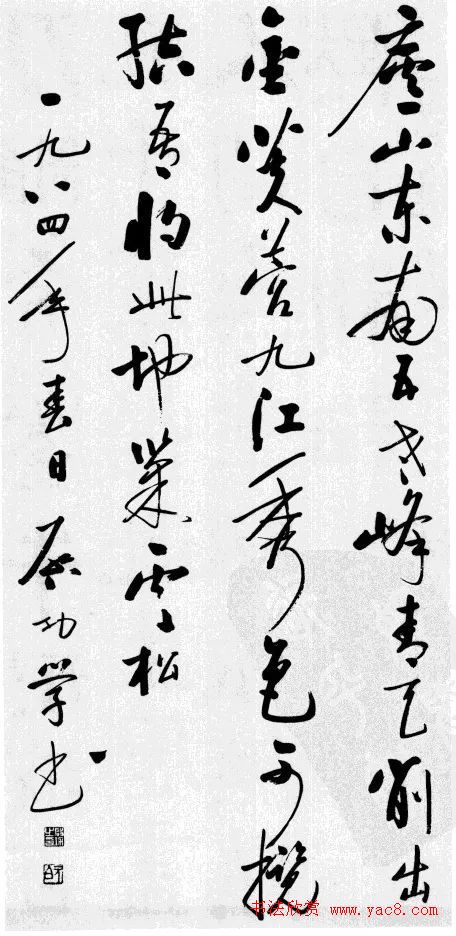 廬山东南五老峰青天削出
金芙蓉九江秀色可揽
结吾将此地巢雲松
一九八四年春日 启功学书
书法欣赏 www.yac8.com